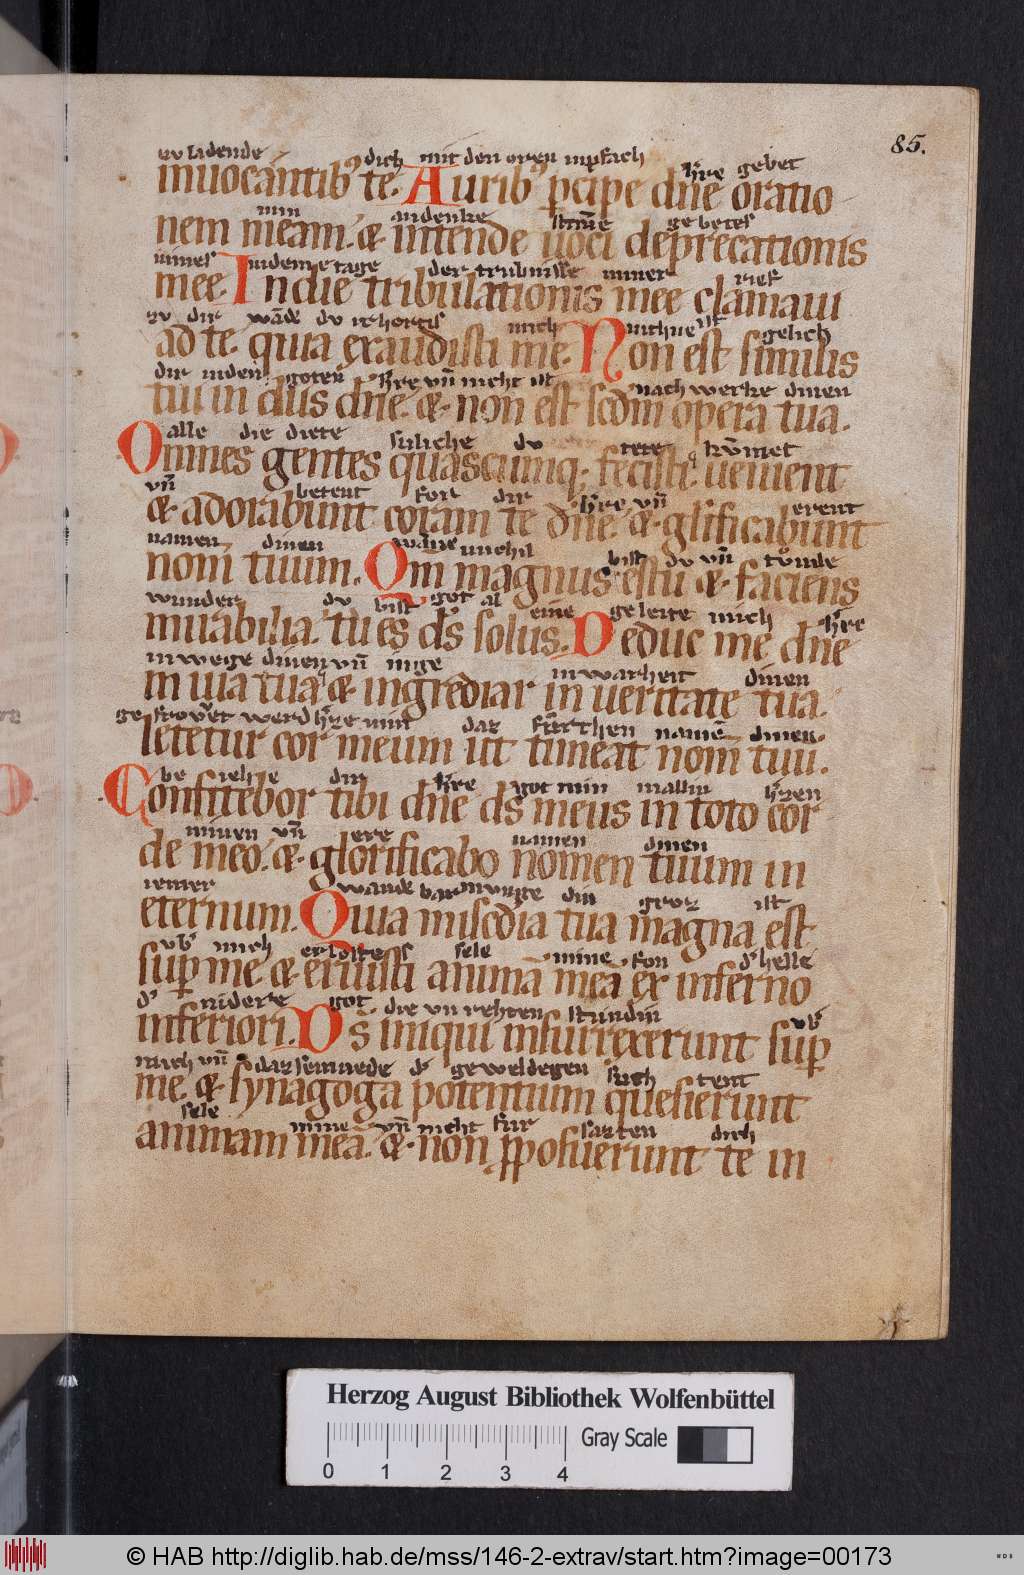 85.
zv ladende dich mit den oren inpfach h̄re gebet
inuocántib⁹ te. Aurib⁹ ꝑcipe dn̄e oratio
min andenke stim̄e gebetes
nem meam. & intende uoci deprecationis
mines indeme tage der trubnisse miner rief
mee. In die tribulationis mee clamaui
zv dir wāde dv irhortis mich nichne ist gelich
ad te. quia exaudisti me. Non est similis
dir inden goten h̄re vn̄ nicht ist nach werke dinen
tui in diis dn̄e. & non est scd̄m opera tua.
alle die diete suliche dv tete kūmet
Omnes gentes quascumq; fecisti uenient
vn̄ betent for dir h̄re vn̄ erent
& adorabunt coram te dn̄e. & glificabunt
namen dinen wāne michil bist dv vn̄ tvͦnde
nom̄ tuum. Qm̄ magnus es tu & faciens
wunder dv bist got al eine geleite mich h̄re
mirabilia. tu es ds̄ solus. Deduc me dn̄e
in wege dinen vn̄ inge in warheit dinen
in uia tua & ingrediar in ueritate tua.
gefrovͦet werd h̄ze min daz fürchten namē dinen.
letetur cor meum ut timeat nom̄ tuū.
be iehe dir h̄re got min mallin h̄zen
Confitebor tibi dn̄e ds̄ meus in toto cor
minen vn̄ ere namen dinen
de meo. & glorificabo nomen tuum in
iemer wande barmvnge din groz ist
eternum. Quia miscd̄ia tua magna est
vb̄ mich erlostess sele mine fon d' helle
sup me & eruisti animā meā ex inferno
d' nidere got. die vn rehten stundin vb̄
inferiori. Ds̄ iniqui insurrexerunt sup
mich vn̄ daz semnede d' geweldegen such tent
me. & synagoga potentium quesierunt
sele mine vn̄ nicht fur sazten dich
animam meā. & non ꝓposuerunt te in
Herzog August Bibliothek Wolfenbüttel
Gray Scale
0 1 2 3 4
© HAB http://diglib.hab.de/mss/146-2-extrav/start.htm?image=00173